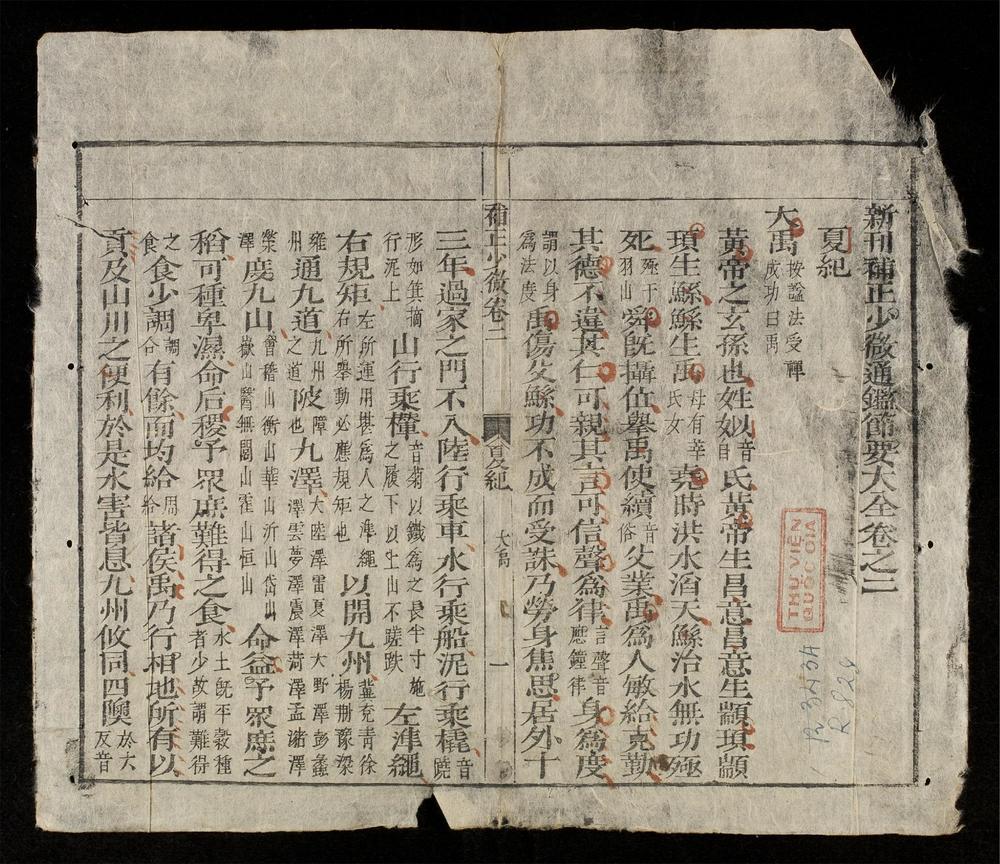 新刊補正少微通鑑節要大全卷之二
夏紀
大禹 按謚法受禪成功曰禹
黃帝之玄孫也姓姒音自氏黃帝生昌意昌意生顓頊顓
頊生鯀鯀生禹母有莘氏女堯時洪水滔天鯀治水無功殛
死殛于羽山舜既攝位舉禹使續音俗父業禹為人敏給克勤
其德不違其仁可親其言可信聲為律言聲音應鐘律身為度
謂以身為法度禹傷父鯀功不成而受誅乃勞身焦思居外十
補正少微卷二 夏紀 大禹 一
三年過家之門不入陸行乘車水行乘船泥行乘橇音曉
形如箕摘行泥上山行乘檋音菊以鐵為之長半寸施之履下以上山不蹉跌左準繩
右規矩左所運用堪為人之準繩右所舉動必應規矩也以開九州冀兗青徐楊荆豫梁
雍州通九道九州之道陂障也九澤大陸澤雷夏澤大野澤彭蠡澤雲夢澤震澤菏澤孟諸澤
滎澤度九山會稽山衡山華山沂山岱山嶽山醫無閭山霍山恒山命益予眾庶之
稻可種卑濕命后稷予眾庶難得之食水土既平穀種者少故謂難得
之食食少調調合有餘而均給周給諸侯禹乃行相地所有以
貢及山川之便利於是水害皆息九州攸同四隩於六反音
THƯ VIỆN
QUỐC GIA
R 829